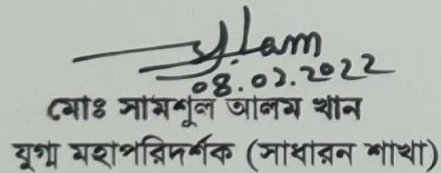 08.02.2022
মোঃ সামশুল আলম খান
যুগ্ম মহাপরিদর্শক (সাধারন শাখা)